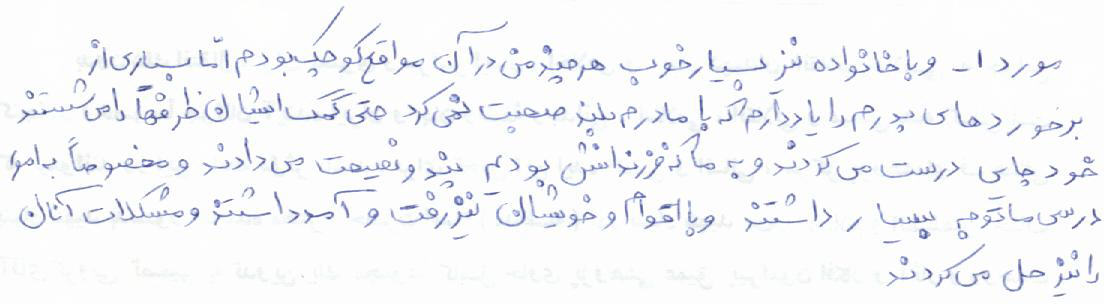 مورد ۱ـ و با خانواده نیز بسیار خوب هرچند من در آن مواقع کوچک بودم امّا بسیاری از
برخوردهای پدرم را یاد دارم که با مادرم بلند صحبت نمی‌کرد حتی گهگاه ایشان ظرفها را می شستند
خود چایی درست می کردند و به ما که فرزندانش بودیم پند و نصیحت می دادند و مخصوصاً به امور
درسی ما توجه بسیار داشتند و با اقوام و خویشان نیز رفت و آمد داشتند و مشکلات آنان
را نیز حل می کردند